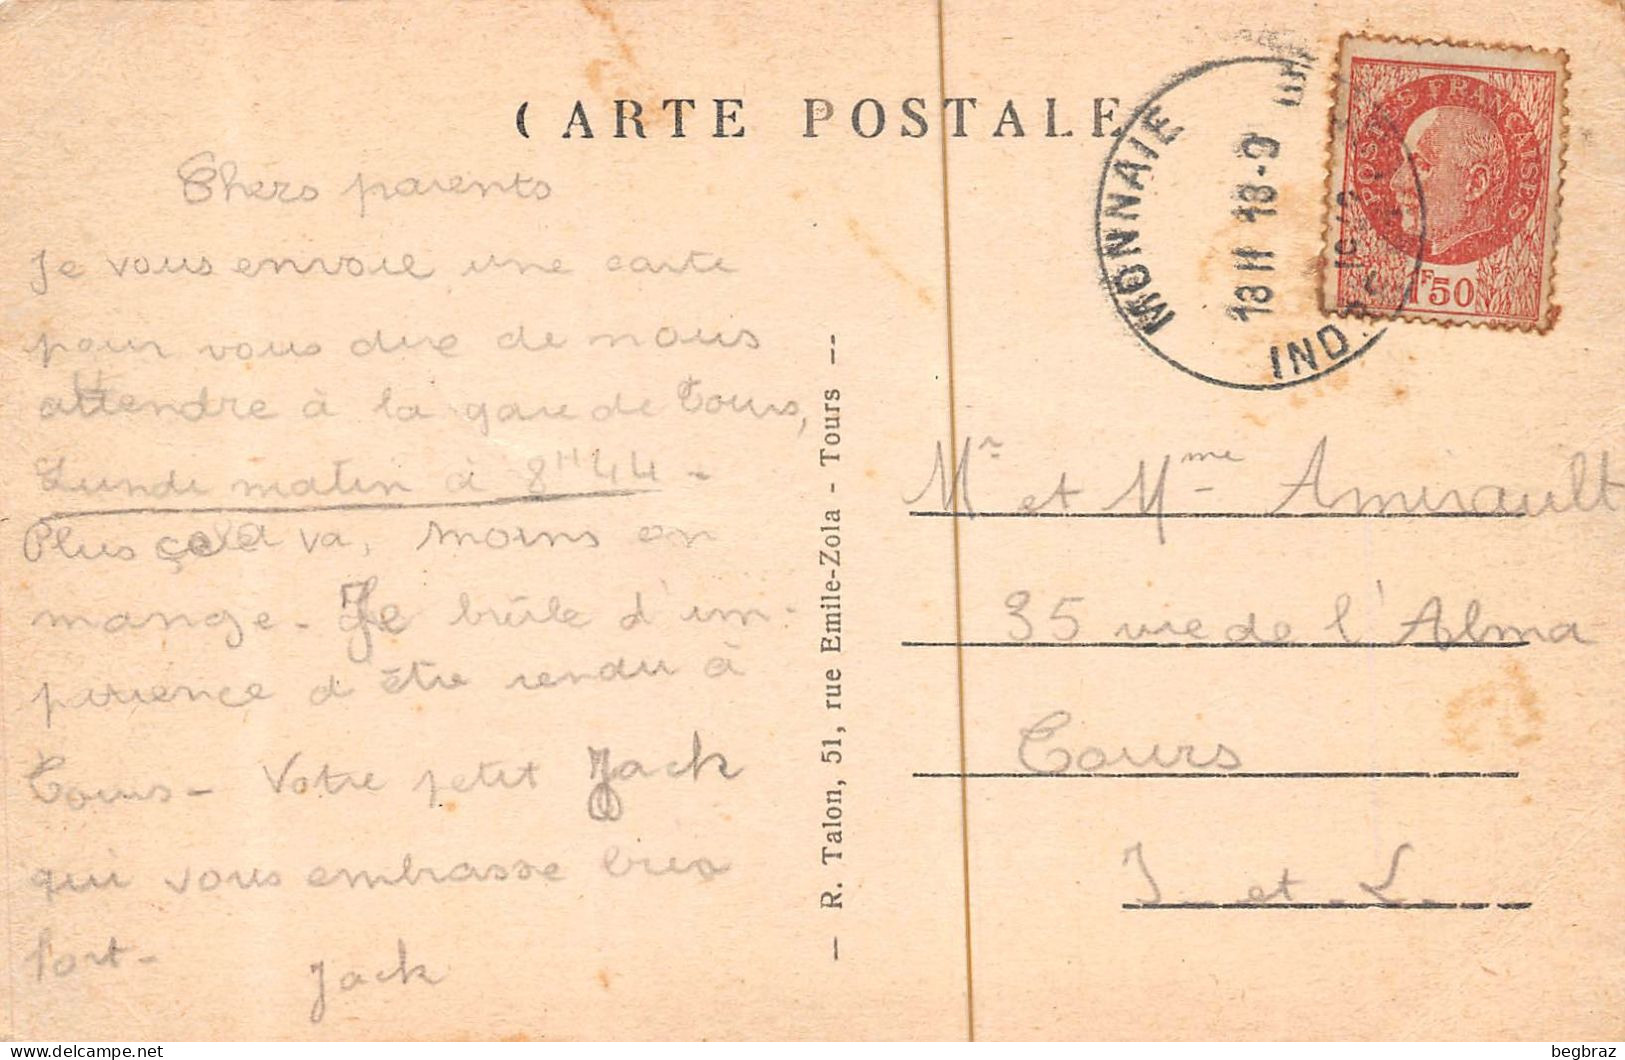 CARTE POSTALE
Chers parents
Je vous envoie une carte
pour vous dire de nous
attendre à la gare de Tours,
Lundi matin à 8H44 -
Plus cela va, moins on
mange - Je brûle d'im-
patience d'être rendu à
Tours - Votre petit Jack
qui vous embrasse bien
fort -
Jack
— R. Talon, 51, rue Emile-Zola - Tours --
MONNAIE
18-9
18 11
INDRE
POSTES FRANÇAISES
1F50
Mr et Mme Amirault
35 rue de l'Alma
Tours
I - et - L
begbraz